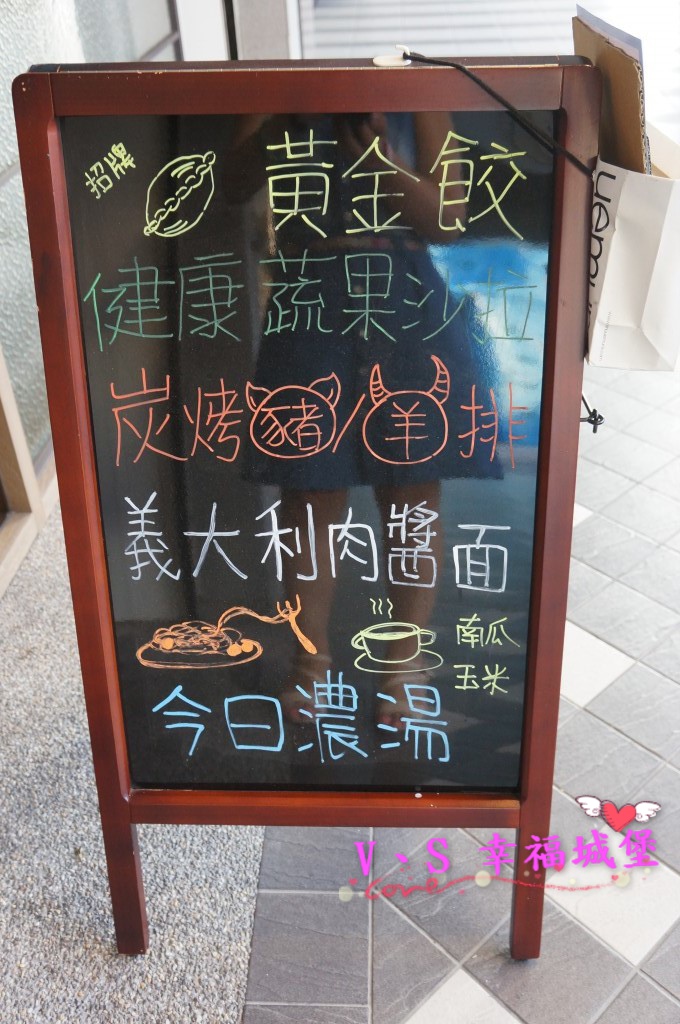 招牌 黃金餃
健康蔬果沙拉
炭烤豬/羊排
義大利肉醬面
南瓜
玉米
今日濃湯
V、S 幸福城堡
Love